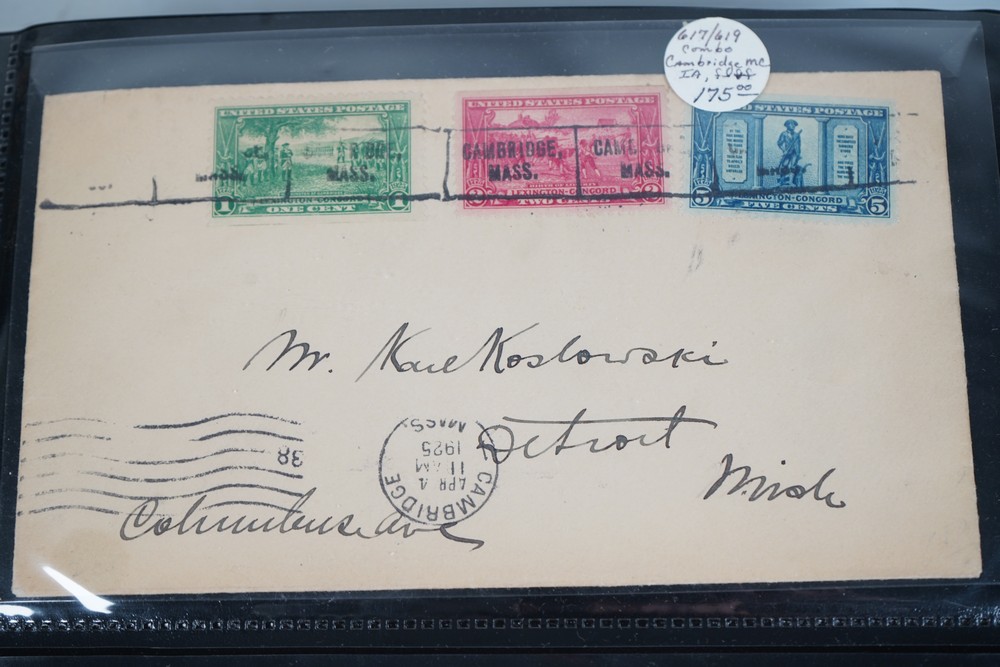 617/619
Combo
Cambridge MC
IA,
175.00
UNITED STATES POSTAGE
1 LEXINGTON-CONCORD 1
ONE CENT
MASS.
UNITED STATES POSTAGE
CAMBRIDGE,
MASS.
MASS.
BIRTH OF LIBERTY
2 LEXINGTON-CONCORD 2
TWO CENTS
UNITED STATES POSTAGE
5 LEXINGTON-CONCORD 5
FIVE CENTS
Mr. Karl Koslowski
Detroit
Mich
Columbus Ave
38
CAMBRIDGE
APR 4
11 AM
1925
MASS.